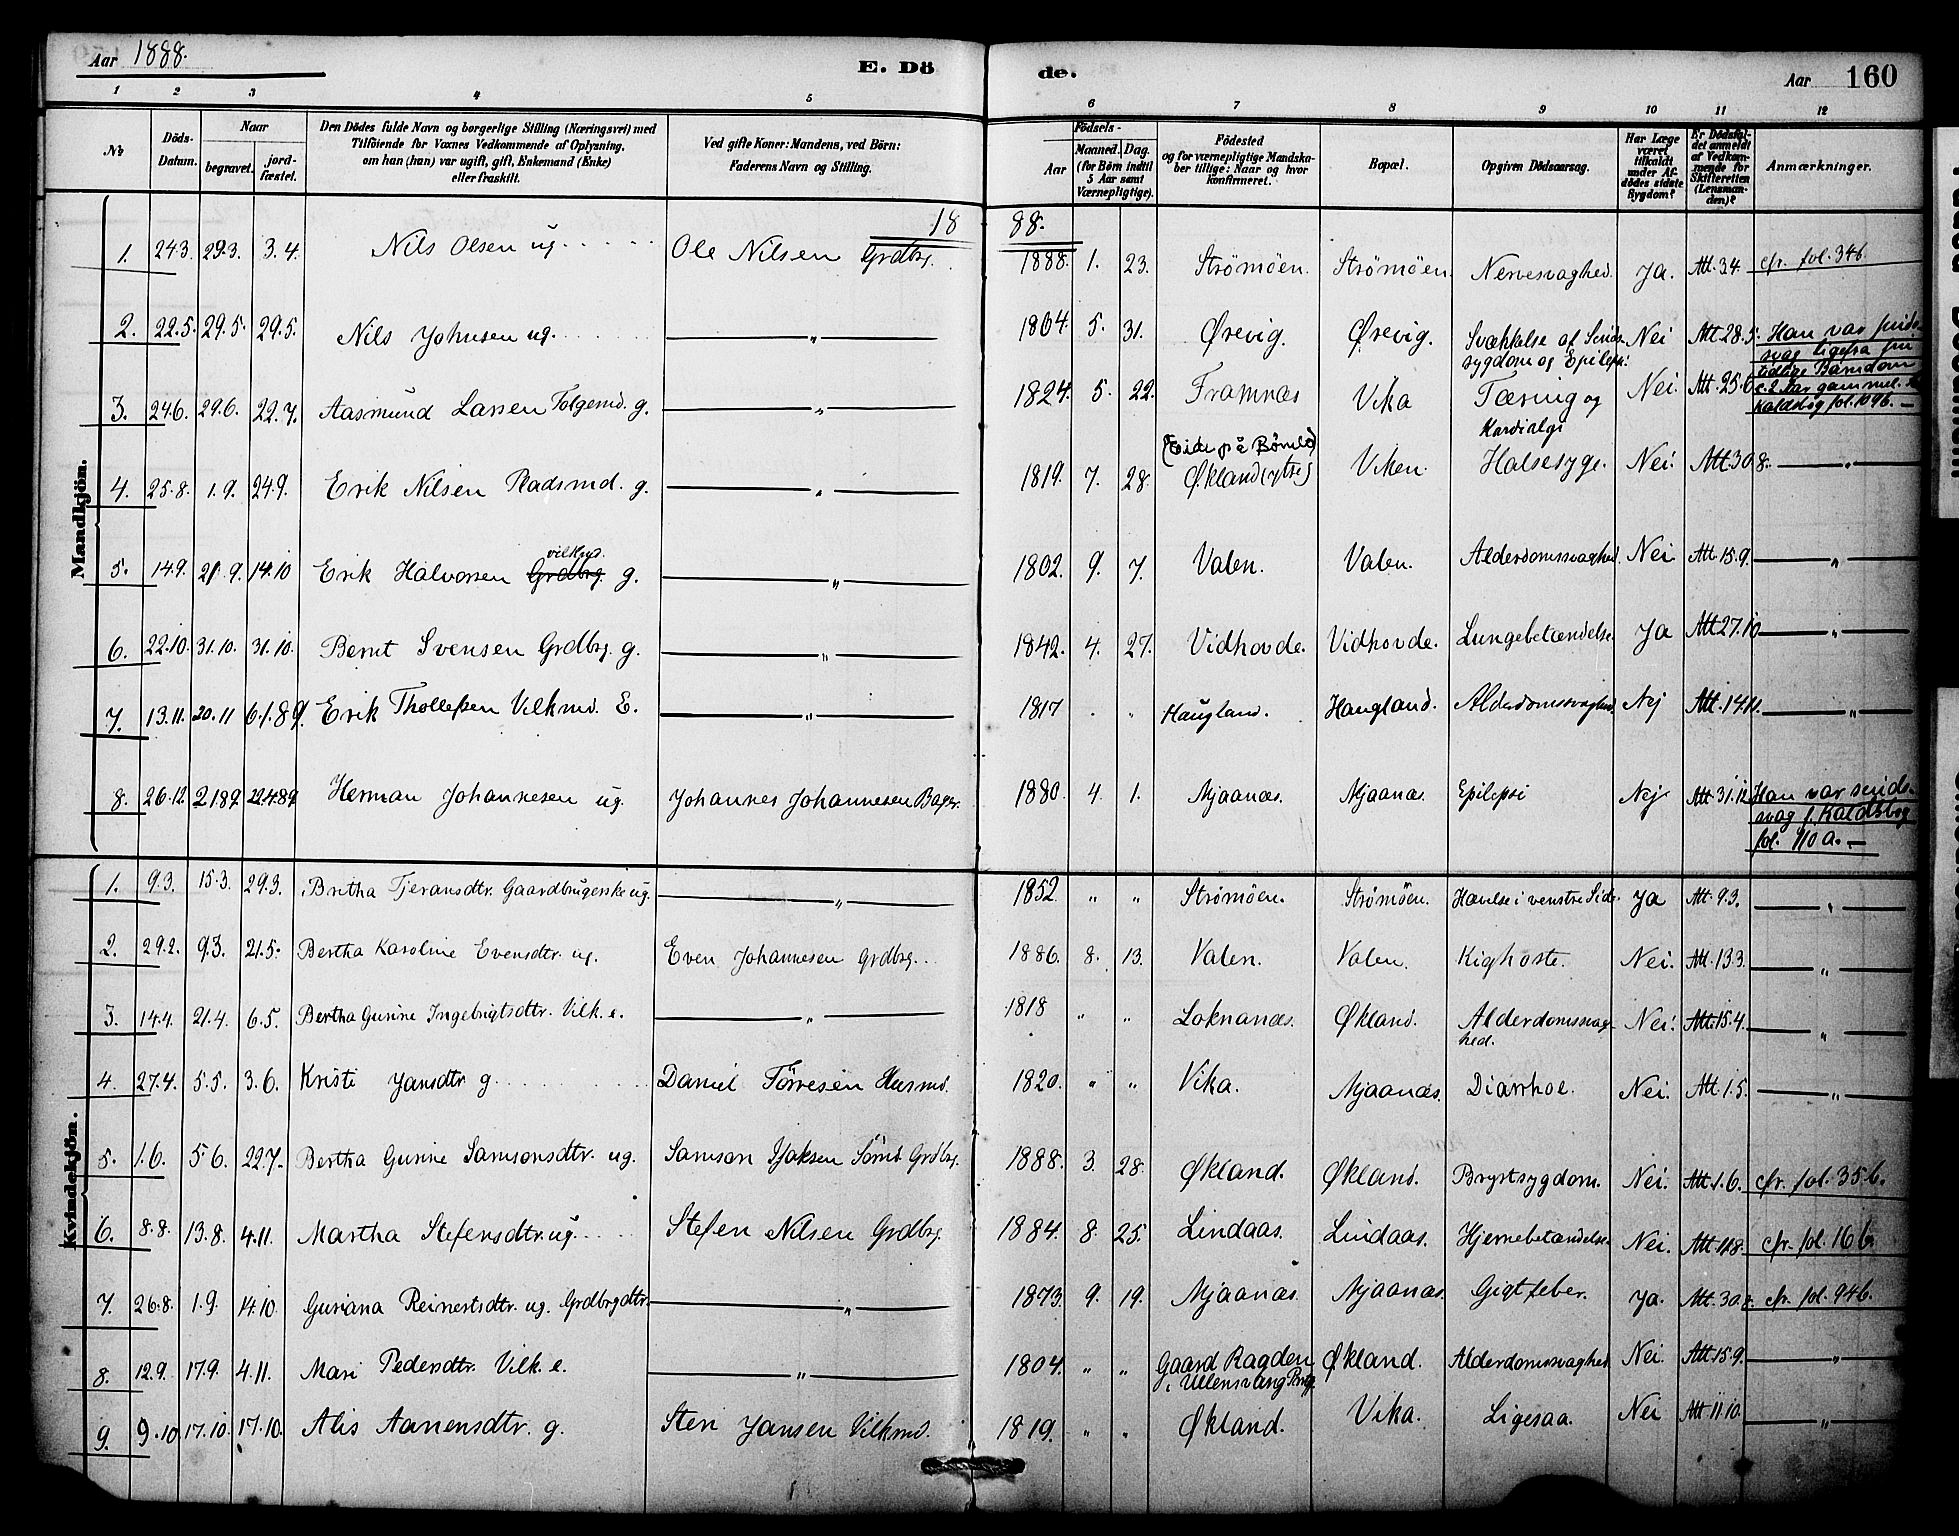 Aar 1888.
E. Dö
de.
Aar 160
1 2 3 4 5 6 7 8 9 10 11 12
No
Döds-Datum.
Naar
begravet.
jord-fæstet.
Den Dödes fulde Navn og borgerlige Stilling (Næringsvei) med
Tilföiende for Voxnes Vedkommende af Oplysning,
om han (hun) var ugift, gift, Enkemand (Enke)
eller fraskilt.
Ved gifte Koner: Mandens, ved Börn:
Faderens Navn og Stilling.
Födsels-
Aar
Maaned. Dag.
(for Börn indtil
5 Aar samt
Værnepligtige).
Födested
og for værnepligtige Mandska-
ber tillige: Naar og hvor
konfirmeret.
Bopæl.
Opgiven Dödsaarsag.
Har Læge
været
tilkaldt
under Af-
dödes sidste
Sygdom?
Er Dödsfal-
det anmeldt
af Vedkom-
mende for
Skifteretten
(Lensman-
den)?
Anmærkninger.
1888.
Mandkjön.
1. 24.3. 29.3. 3.4. Nils Olsen ug. Ole Nilsen Grdbrg. 1888. 1. 23. Strømöen. Strømöen. Nervesvaghed. Ja. Att. 3.4. cfr. fol. 34b.
2. 22.5. 29.5. 29.5. Nils Johnsen ug. " 1864. 5. 31. Ørevig. Ørevig. Svækkelse af Sinds-
sygdom og Epilepsi. Nei Att. 28.5. Han var sinds-
svag ligefra sin
tidlige Barndom
c. 2 Aar gammel.
Kaldsbog fol. 109b. —
3. 24.6. 29.6. 22.7. Aasmund Larsen Folgemd. g. " 1824. 5. 22. Framnæs Vika Tæring og
Kardialgi Nei. Att. 25.6.
4. 25.8. 1.9. 24.9. Erik Nilsen Pladsmd. g. " 1819. 7. 28. (Eide på Bømlo)
Økland (ytre) Viken. Halsesyge. Nei. Att. 30.8. "
5. 14.9. 21.9. 14.10 Erik Halvorsen Grdbrg vilkmd. g. " 1802. 9. 7. Valen. Valen. Alderdomssvaghed. Nei Att. 15.9. "
6. 22.10. 31.10. 31.10. Bernt Svensen Grdbrg. g. " 1842. 4. 27. Vidhovde. Vidhovde. Lungebetændelse. Ja Att 27.10 "
7. 13.11. 20.11 6.1.89. Erik Thollefsen Vilkmd. E. " 1817 " " Haugland. Haugland. Alderdomssvaghed. Nej Att. 14.11. "
8. 26.12. 2.1.89. 22.4.89. Herman Johannesen ug. Johannes Johannesen Bager. 1880. 4. 1. Mjaanæs. Mjaanæs. Epilepsi Nej Att. 31.12. Han var sinds-
svag f. Kaldsbog
fol. 110 a. —
Kvindekjön.
1. 9.3. 15.3. 29.3. Britha Tjeransdtr. Gaardbrugerske ug. " 1852. " " Strømöen. Strømöen. Hævelse i venstre Side. Ja Att. 9.3. "
2. 29.2. 9.3. 21.5. Bertha Karoline Evensdtr. ug. Even Johannesen Grdbrg. 1886. 8. 13. Valen. Valen. Kighoste. Nei. Att. 13.3. "
3. 14.4. 21.4. 6.5. Bertha Gurine Ingebrigtsdtr. Vilk. e. " 1818 " " Loknanæs. Økland. Alderdomssvag-
hed. Nei. Att. 15.4. "
4. 27.4. 5.5. 3.6. Kristi Jansdtr g. Daniel Törresen Husmd. 1820. " " Vika. Mjaanæs. Diarrhoe. Nei. Att. 1.5. "
5. 1.6. 5.6. 22.7. Bertha Gurine Samsonsdtr. ug. Samson Grdbrg. 1888. 3. 28. Økland. Økland. Brystsygdom. Nei. Att. 1.6. cfr. fol. 35b.
6. 8.8. 13.8. 4.11. Martha Stefensdtr. ug. Stefen Nilsen Grdbrg. 1884. 8. 25. Lindaas. Lindaas. Hjernebetændelse. Nei. Att. 11.8. cfr. fol. 16b.
7. 26.8. 1.9. 14.10. Guriana Reinertsdtr. ug. Grdbrgdtr. " 1873. 9. 19. Mjaanæs. Mjaanæs. Gigtfeber. Ja. Att. 30.8. cfr. fol. 94b.
8. 12.9. 17.9. 4.11. Mari Pedersdtr. Vilk. e. " 1804. " " Gaard Ragden
i Ullensvang Prstg. Økland. Alderdomssvaghed. Nei. Att. 15.9. "
9. 9.10 17.10. 17.10. Alis Aanensdtr. g. Sten Jansen Vilkmd. 1819. " " Økland. Vika. Ligesaa. Nei Att. 11.10. "